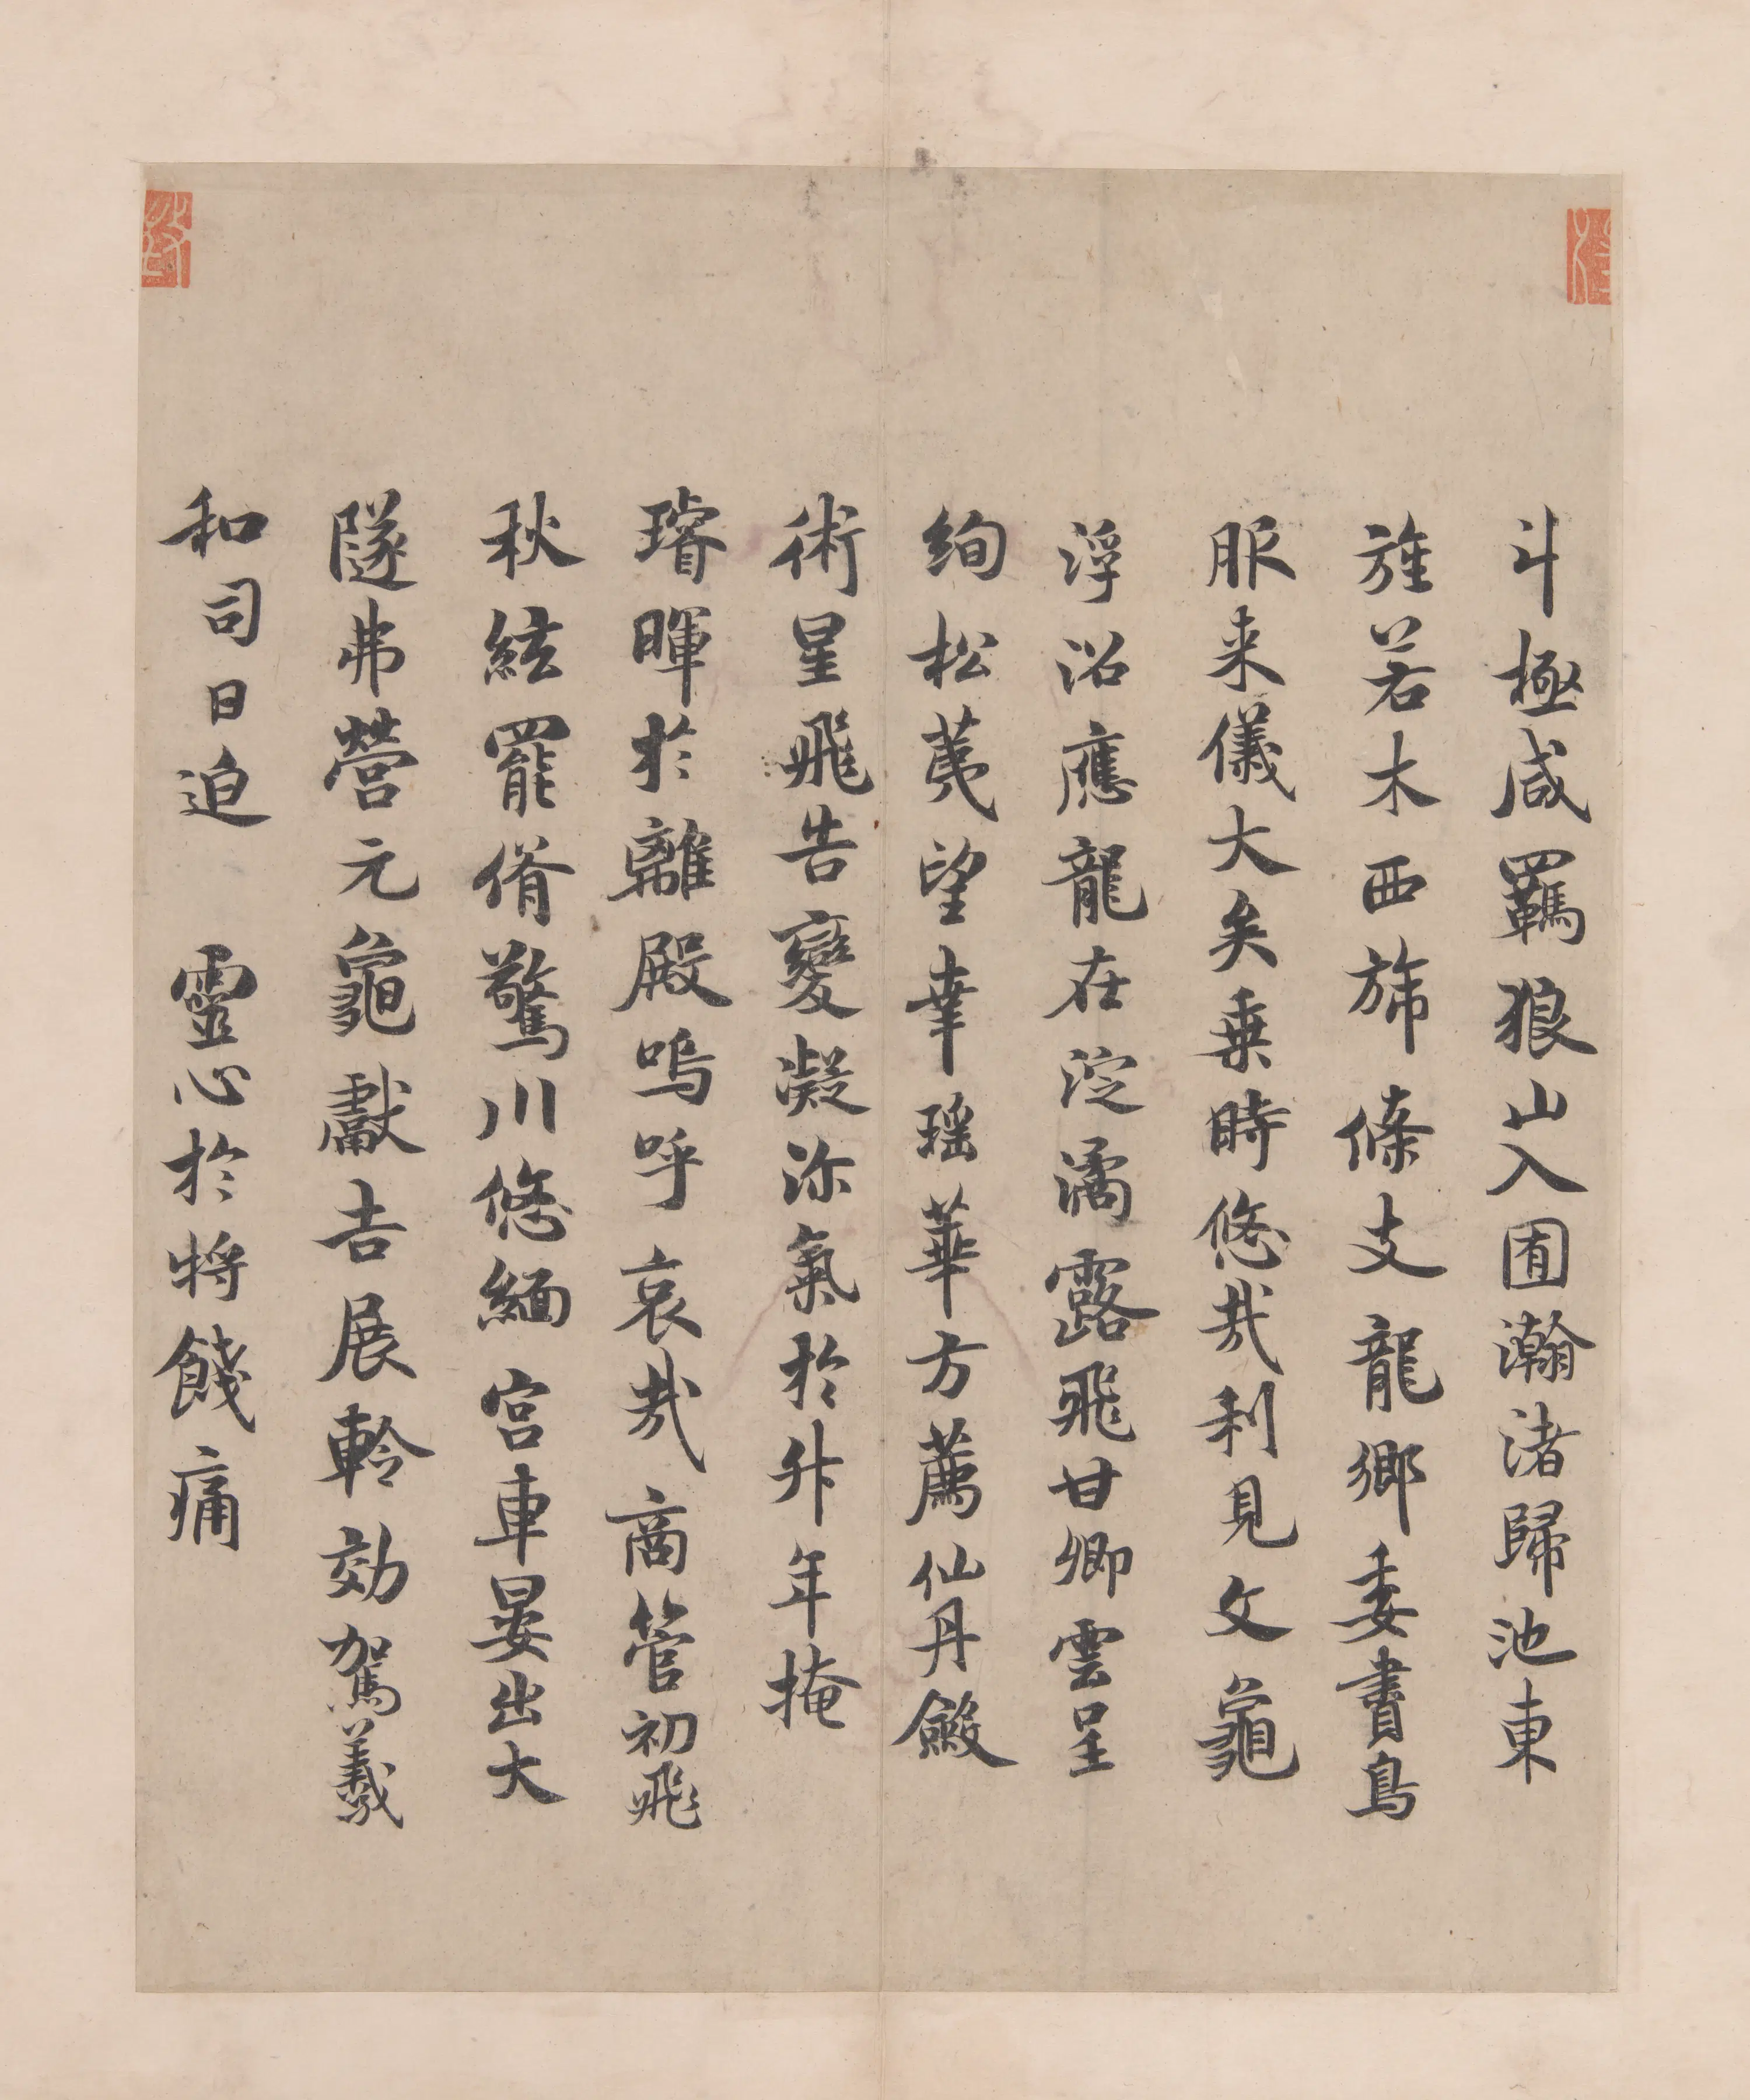 斗極咸羈狼山入囿瀚渚歸池東
旌若木西旆條支龍鄉委賮鳥
服来儀大矣乗時悠哉利見文龜
浮沼應龍在淀潏露飛甘卿雲呈
絢松茰望幸瑶華方薦仙丹斂
術星飛告變凝沴氣於升年掩
璿暉於離殿嗚呼哀哉商管初飛
秋絃罷傄驚川悠緬宮車晏出大
隧弗營元龜獻吉展軨効駕羲
和司日迫 靈心於将餞痛